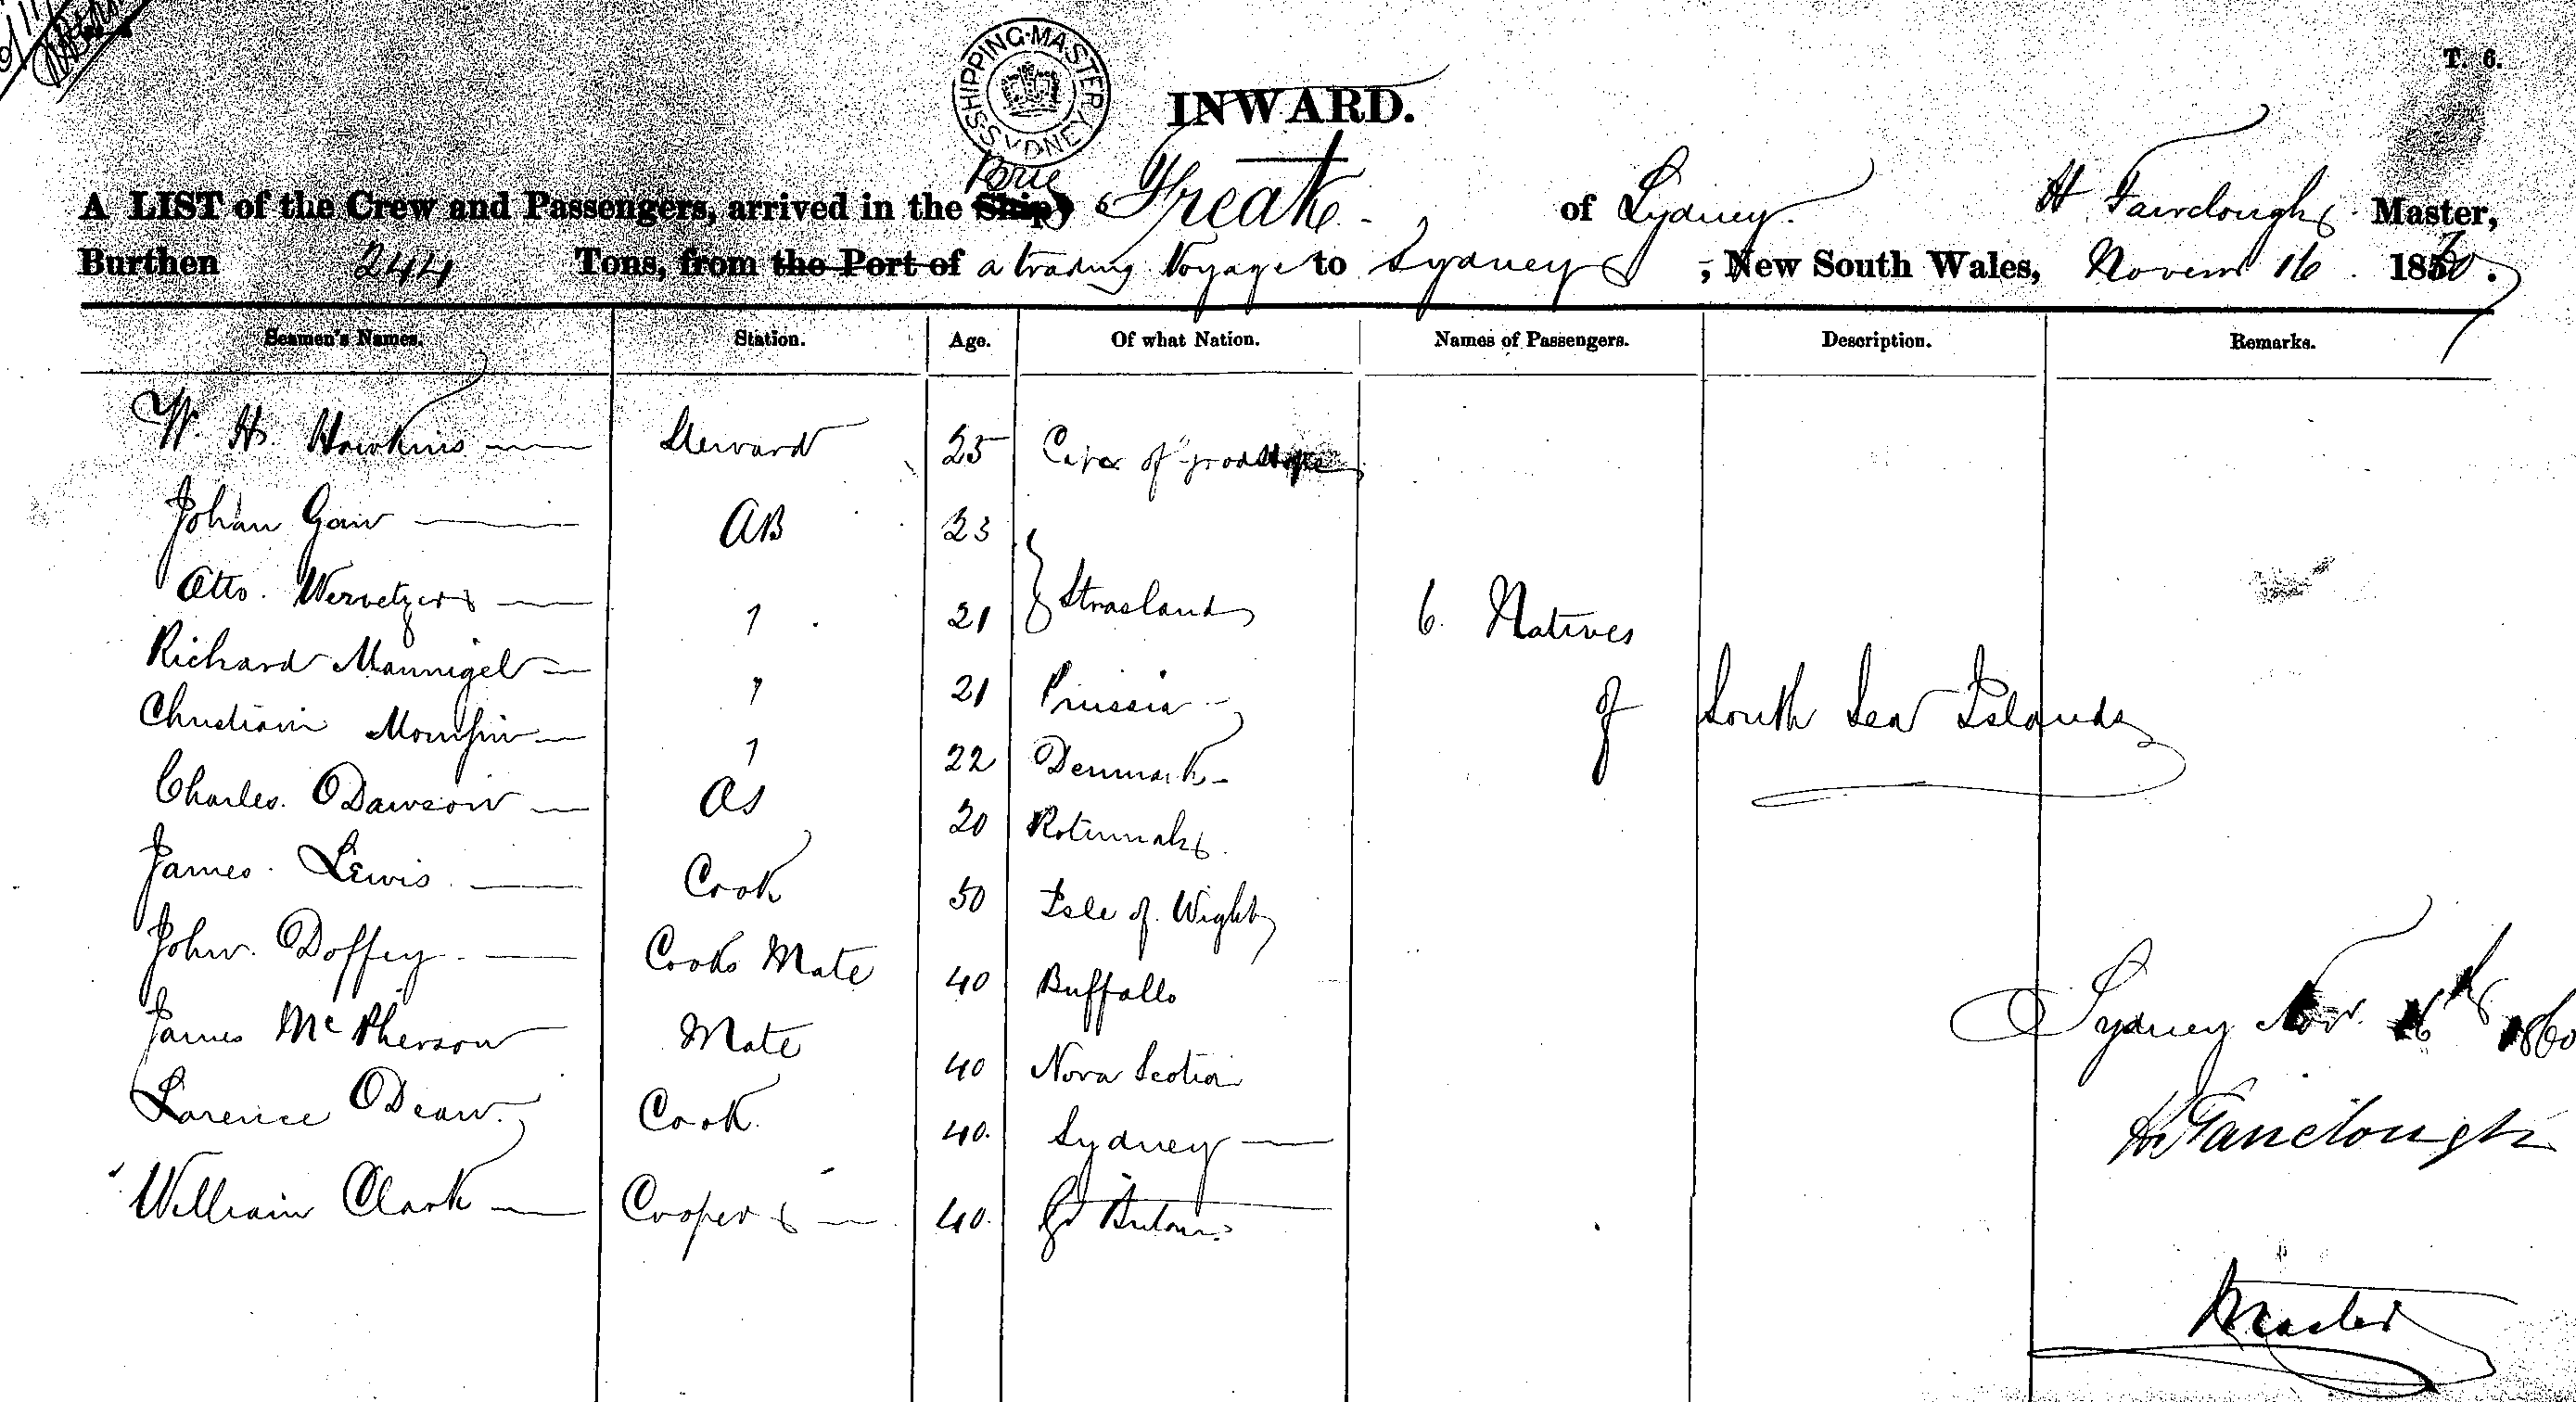 SHIPPING·MASTERS·SYDNEY
T. 6.
INWARD.
A LIST of the Crew and Passengers, arrived in the Ship Freak of Sydney. H Fairclough Master,
Burthen 244 Tons, from the Port of a trading Voyage to Sydney, New South Wales, Novem 16 1860.
Seamen's Names. Station. Age. Of what Nation. Names of Passengers. Description. Remarks.
W. H. Hawkins Steward 25 Cape of good Hope
Johan 23
AB
Otto 21 Strasland 6. Natives
Richard Mannigel 21 Prussia of South Sea Islands
Christian 22 Denmark
Charles Dawson OS 20 Rotumah
James Lewis Cook 50 Isle of Wight
John Doffey Cooks Mate 40 Buffallo
James McPherson Mate 40 Nova Scotia Sydney Nov. 16th 1860
Larence Dean Cook 40. Sydney H Fairclough
William Clark Cooper 40. Gt Britain
Master